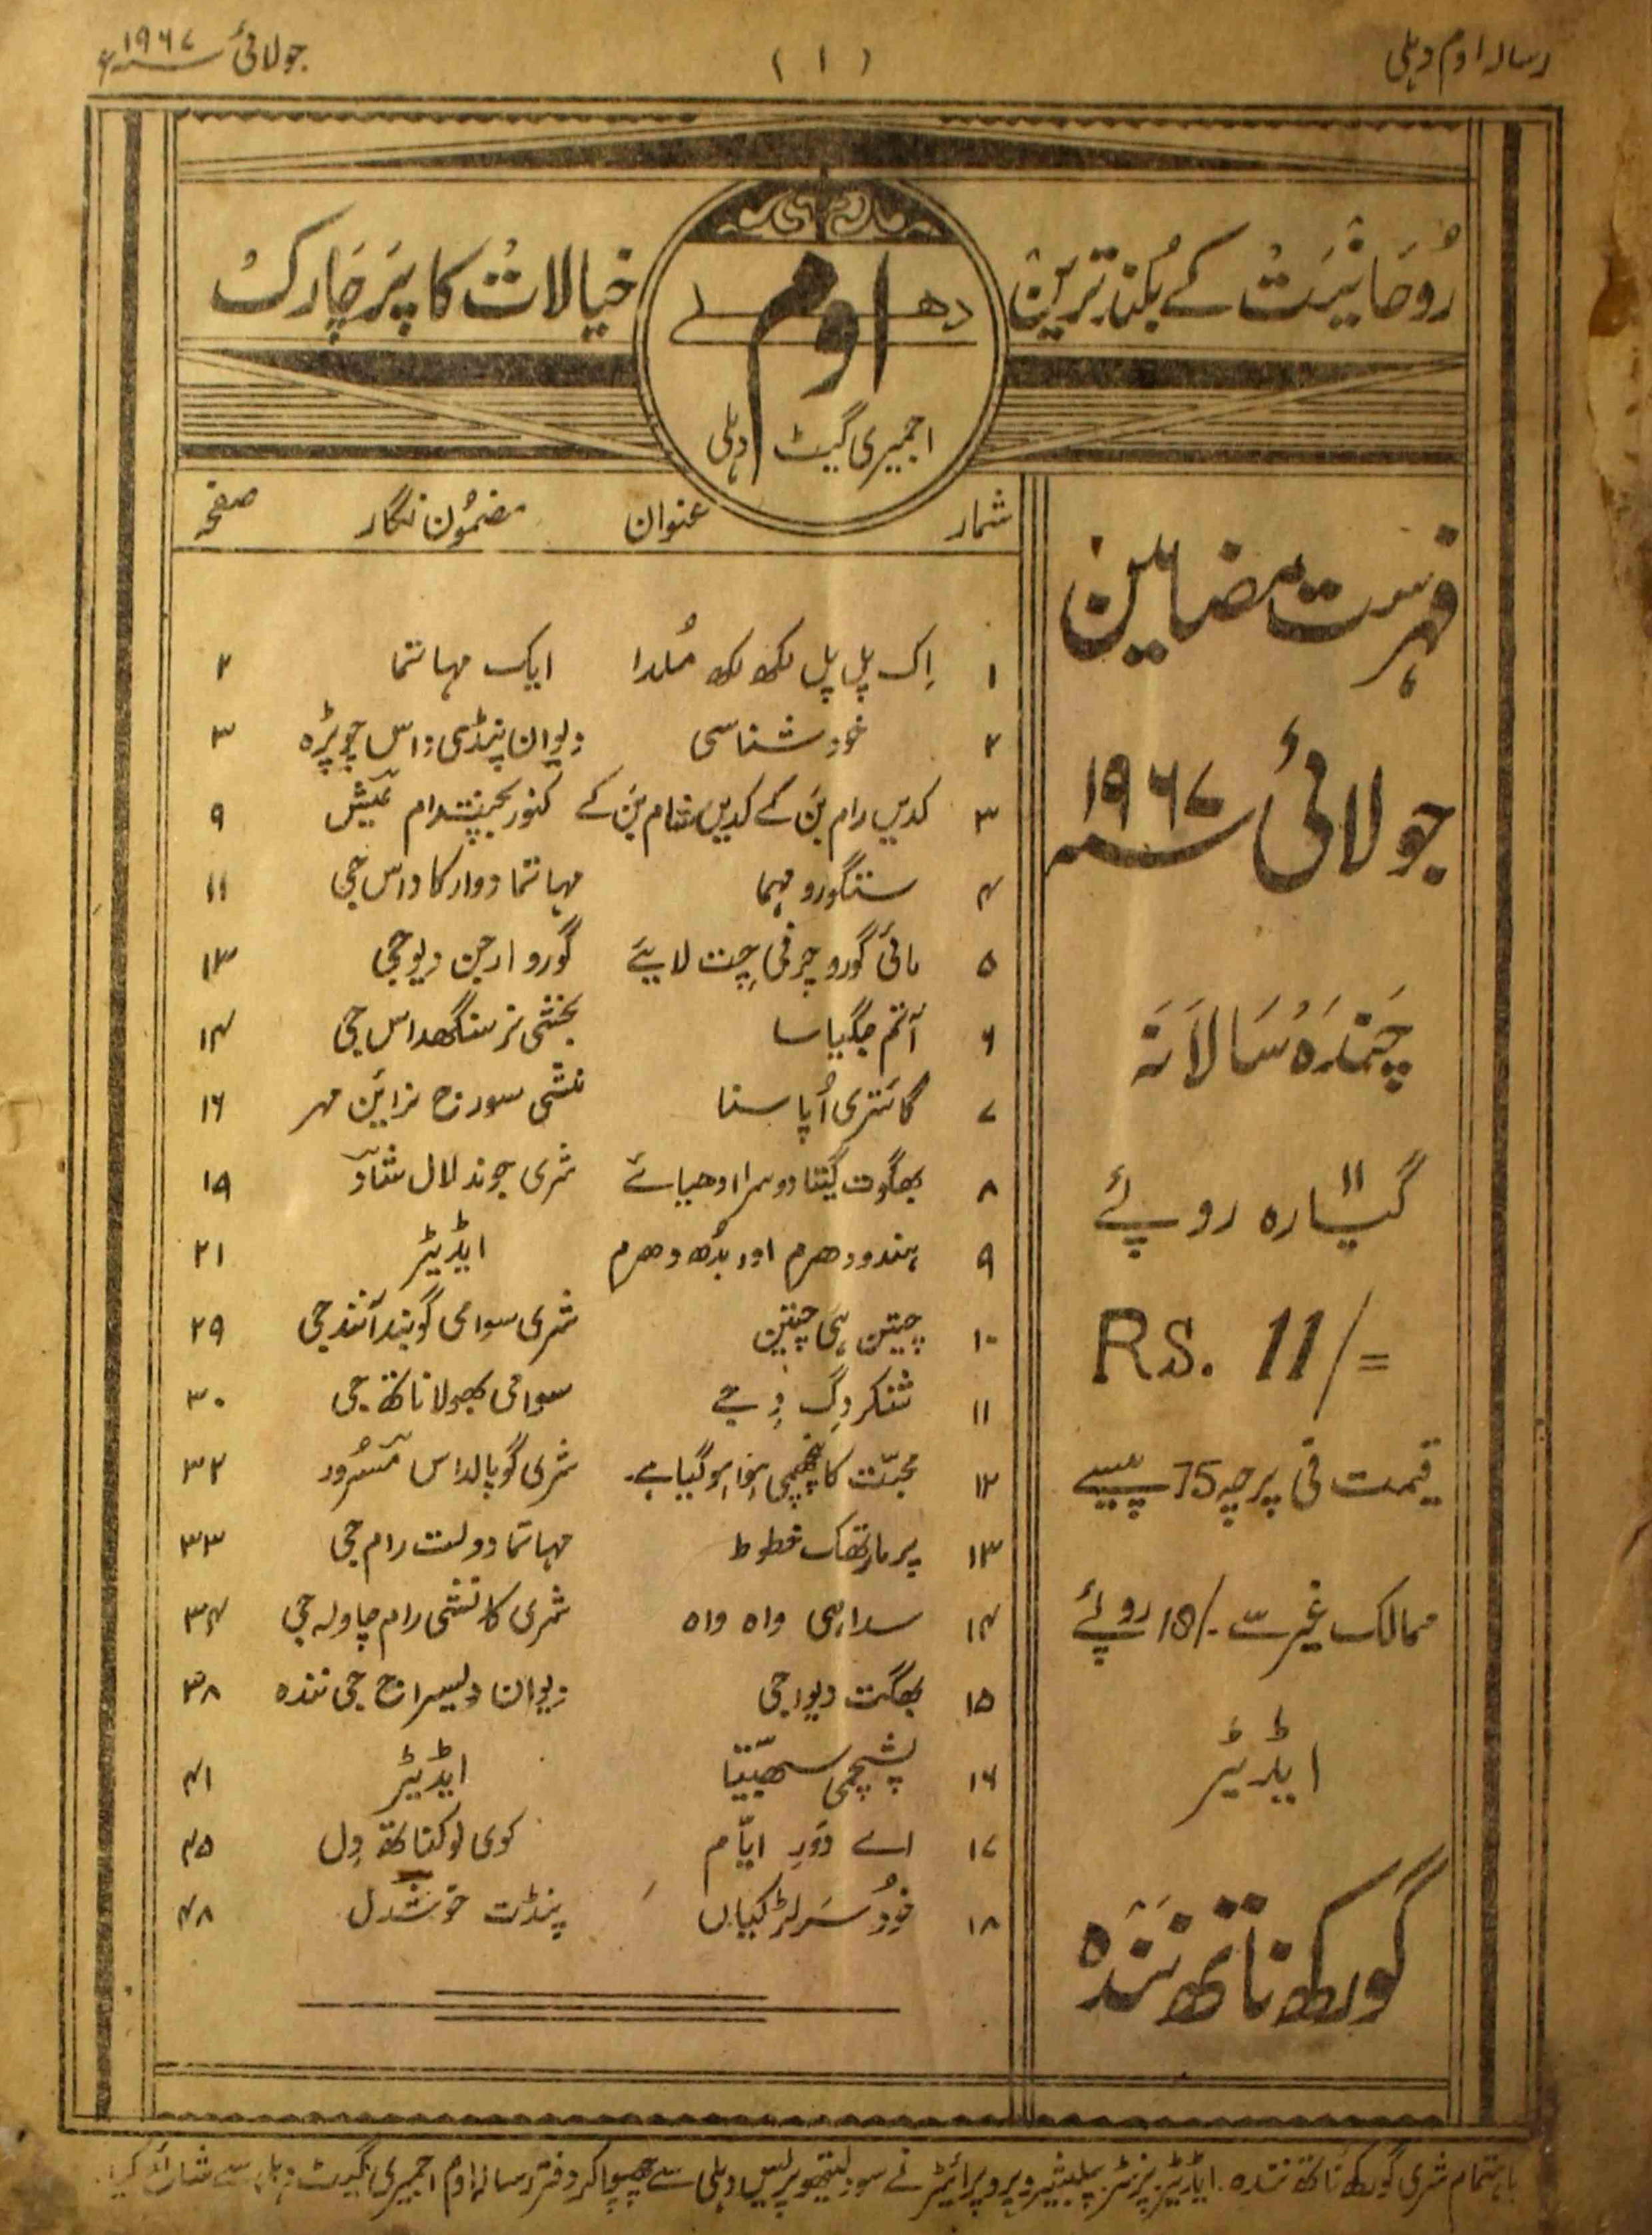 رسالہ اوم دہلی (۱) جولائی ۱۹۶۷ء
رُوحانیت کے بُلند ترین خیالات کا پرچارک
اوم
دھلے
اجمیری گیٹ دہلی
فہرست مضامین
جولائی ۱۹۶۷
چندہ سالانہ
گیارہ روپئے
Rs. 11/=
قیمت فی پرچہ 75 پیسے
ممالک غیر سے /18 روپئے
ایڈیٹر
گورکھ ناتھ نندہ
شمار عنوان مضمون نگار صفحہ
۱ اِک پل پل لکھ لکھ مُلدا ایک مہاتما ۲
۲ خود شناسی دیوان پنڈی داس چوپڑہ ۳
۳ کدیں رام بن کے کدیں شام بن کے کنور بھینت رام عیش ۹
۴ ستگورو مہما مہاتما دوارکا داس جی ۱۱
۵ مائی گورو چرنی چت لایئے گورو ارجن دیو جی ۱۳
۶ آتم جگیاسا بخشی نرسنگھداس جی ۱۴
۷ گائتری اُپاسنا منشی سورج نرائین مہر ۱۶
۸ بھگوت گیتا دوسرا ادھیائے شری چوند لال شاد ۱۹
۹ ہندو دھرم اور بدھ دھرم ایڈیٹر ۲۱
۱۰ چیتن ہی چیتن شری سوامی گوبند آنند جی ۲۹
۱۱ شنکر دِگ وِجے سوامی بھولا ناتھ جی ۳۰
۱۲ محبّت کا پنچھی ہوا ہو گیا ہے۔ شری گوپالداس مسرور ۳۲
۱۳ پرمارتھک خطوط مہاتما دولت رام جی ۳۳
۱۴ سدا ہی واہ واہ شری کانشی رام چاولہ جی ۳۴
۱۵ بھگت دیوا جی دیوان دلیسراج جی نندہ ۳۸
۱۶ پشچمی سبھیتا ایڈیٹر ۴۱
۱۷ اے دَورِ ایّام کوی لوکناتھ دِل ۴۵
۱۸ خود سَر لڑکیاں پنڈت خوشدل ۴۸
باہتمام شری گورکھ ناتھ نندہ۔ ایڈیٹر پرنٹر پبلیشر و پروپرائیٹر نے سور لیتھو پریس دہلی سے چھپوا کر دفتر رسالہ اوم اجمیری گیٹ دہلی سے شائع کیا۔